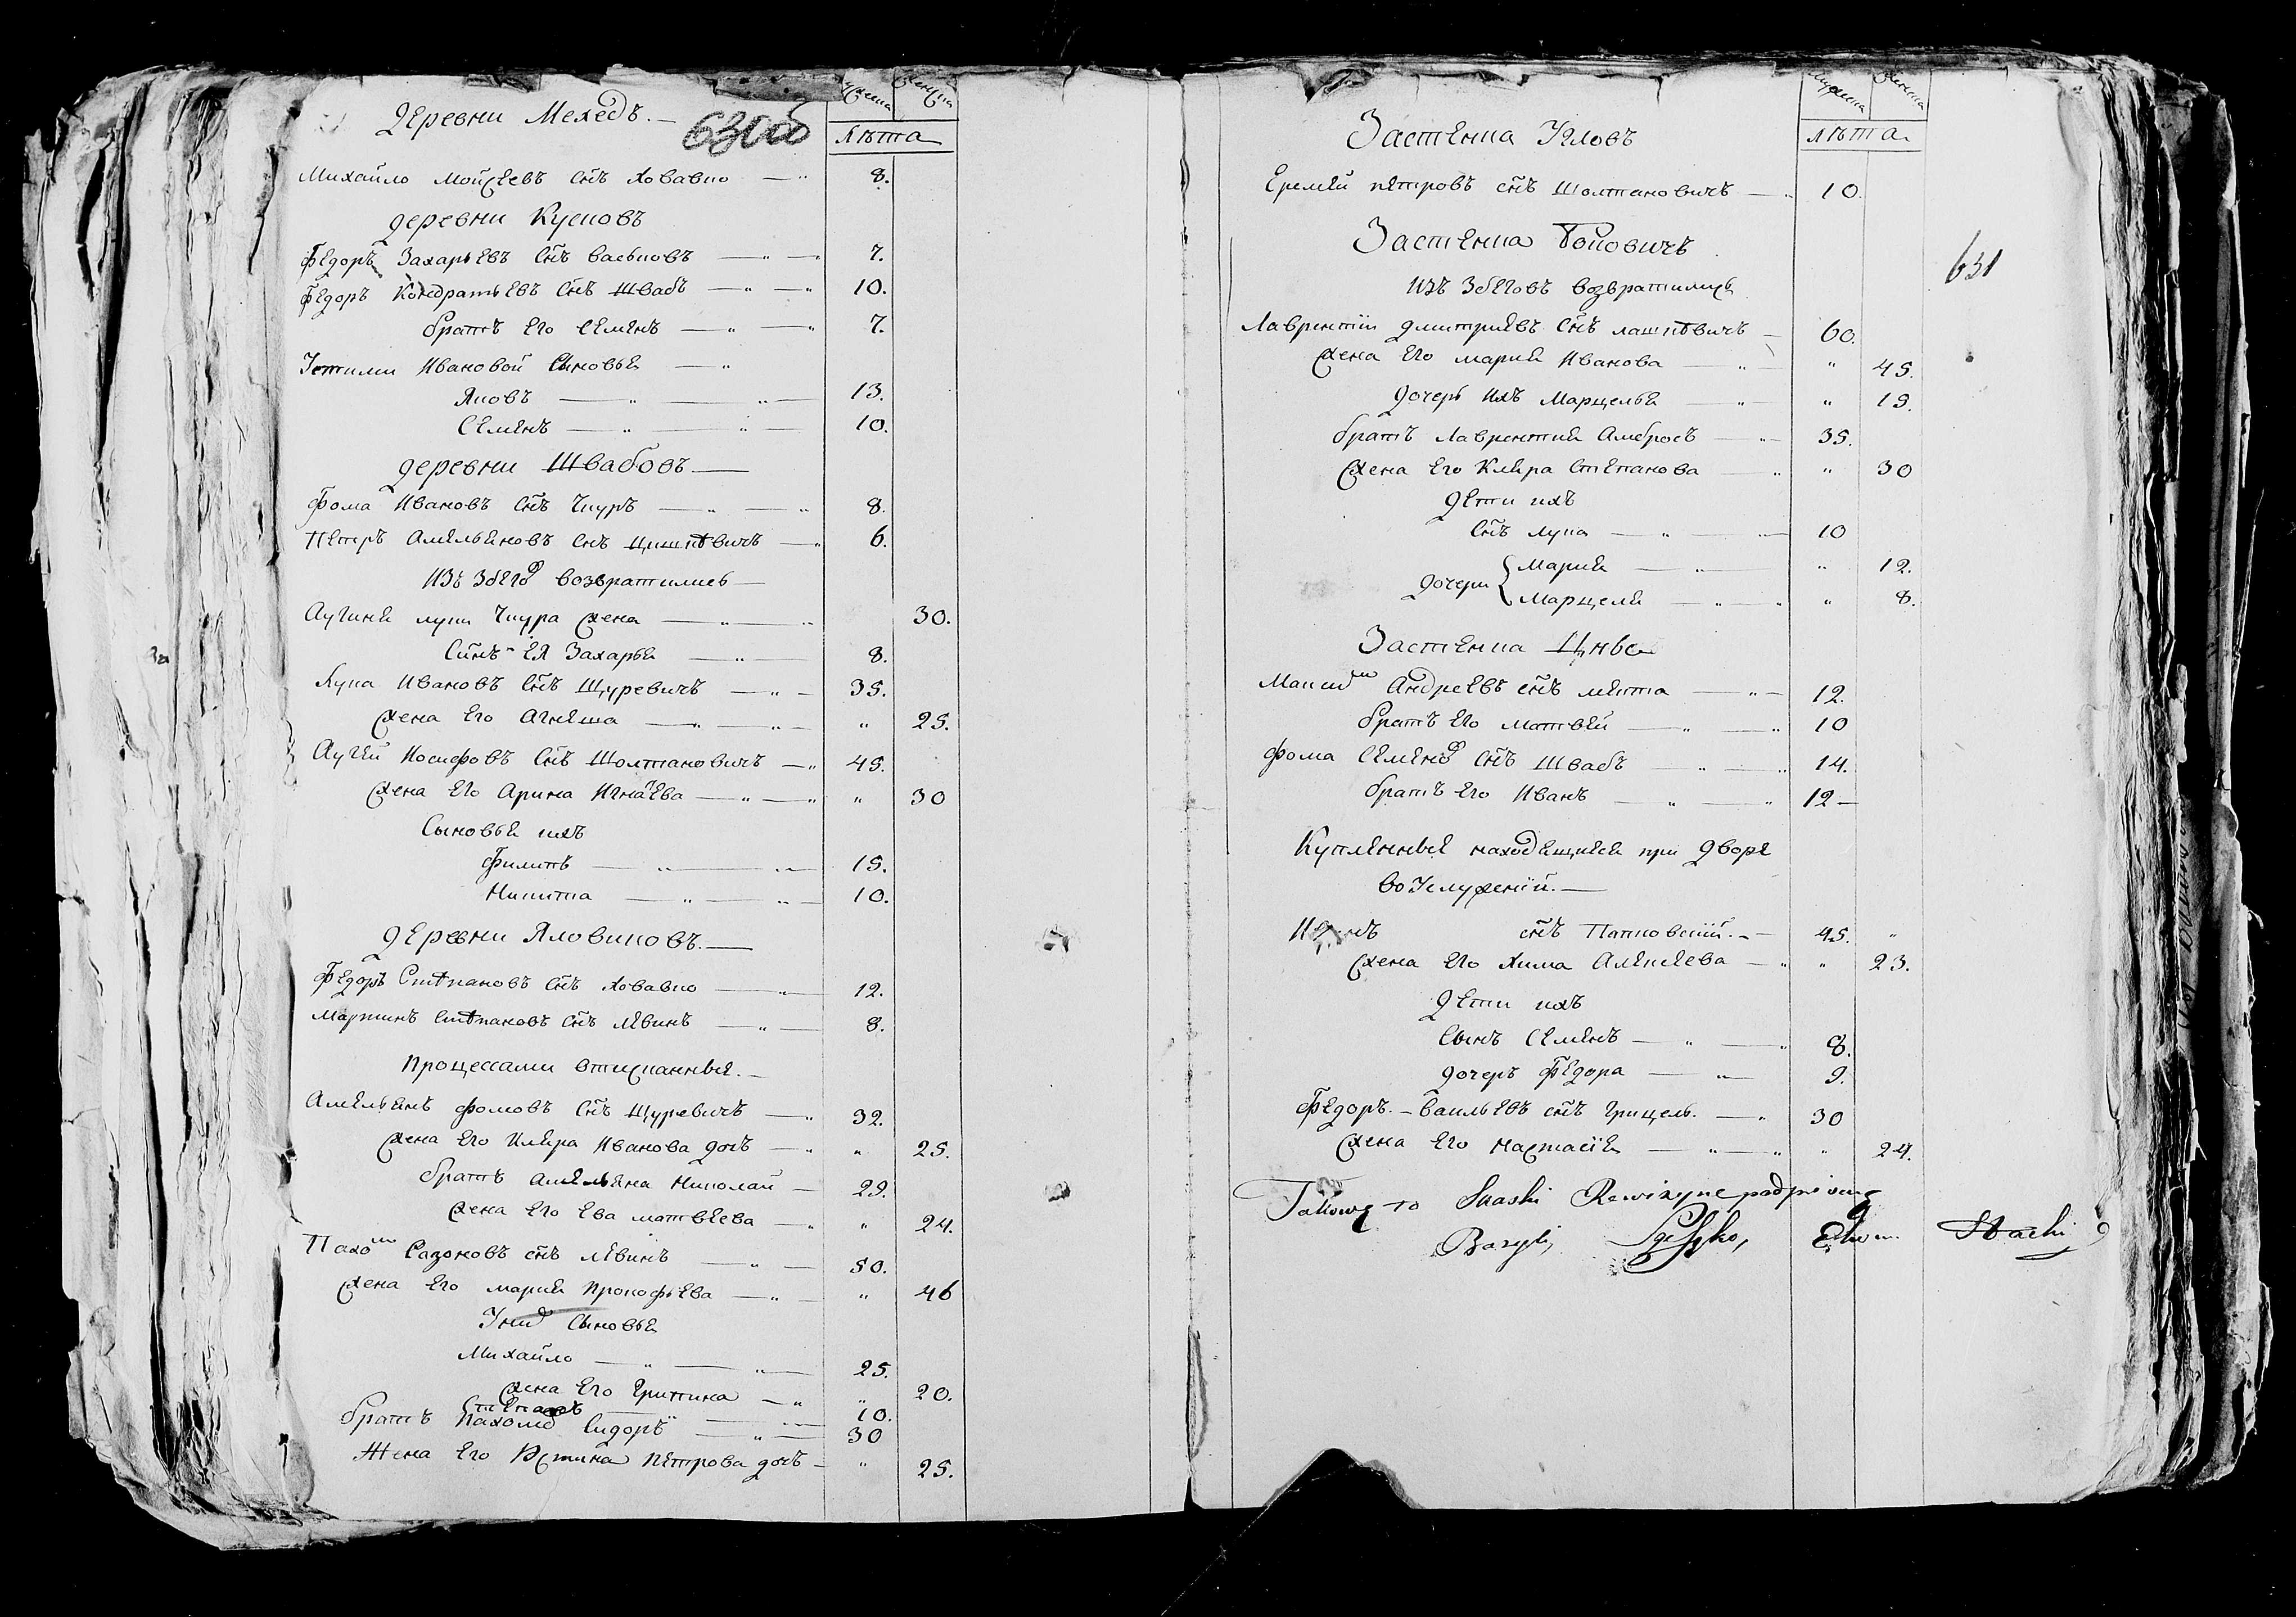 Деревни Мехедъ.
630об
мужеска женска
лѣта
Михайло Мойсеевъ снъ Ховавко 8.
деревни Куековъ
Федоръ Захарьевъ снъ 7.
Федоръ Кондратьевъ снъ Швабъ 10.
братъ его Семенъ 7.
Ивановой сыновья
Яковъ 13.
Семенъ 10.
деревни Швабовъ
Фома Ивановъ снъ Чкуръ 8.
Петръ Амельяновъ снъ 6.
изъ збегов возвратились
Аугиня луки Чкура жена 30.
Синъ ея Захарья 8.
Лука Ивановъ снъ Щуревичъ 35.
жена его Агнеша " 25.
Аугей Иосифовъ снъ Шолтановичъ 45.
жена его Арина Игнатева " 30
Сыновья ихъ
Филипъ 15.
Никита 10.
деревни Яловиковъ.
Федоръ Стѣпановъ снъ Ховавко 12.
Мартинъ Стѣпановъ снъ Левинъ 8.
процессами отисканныя.
Амельянъ Фомовъ снъ Щуревичъ 32.
жена его Клера Иванова дочъ " 25.
братъ Амельяна Николай 29.
жена его Ева матвеева " 24.
Пахом Сазоновъ снъ Левинъ 50.
жена его мария Прокофьева " 46
У них сыновья
Михайло 25.
жена его Грипина " 20.
Степанъ 10.
братъ Пахома Сидоръ 30
Жена его Юстина Петрова дочъ " 25.
мужеска женска
лѣта
Застенка Угловъ
Еремей петровъ снъ Шолтановичъ 10.
631
Застенка Боковичъ
изъ збеговъ возвратились
Лаврентий дмитриевъ снъ лашкѣвичъ 60.
жена его мария Иванова " 45.
дочерь ихъ Марцелья " 15.
братъ Лаврентия Амбросъ 35.
жена его Клера степанова " 30
дети ихъ
снъ лука 10
дочери Мария " 12.
Марцеля " 8.
Застенка
Максим Андреевъ снъ 12.
братъ его Матвей 10
Фома Семенов снъ Швабъ 14.
братъ его Иванъ 12
Купленныя находящияся при дворе
во Услужений.
снъ Папковский. 45. "
жена его Хима Алексеева " 23.
дети ихъ
сынъ Семенъ 8.
дочеръ Федора 9.
Федоръ Васильевъ снъ Грицель. 30
жена его настасия " 24.
Takową to Skaski Rewizyine podpisuię
Bazyli